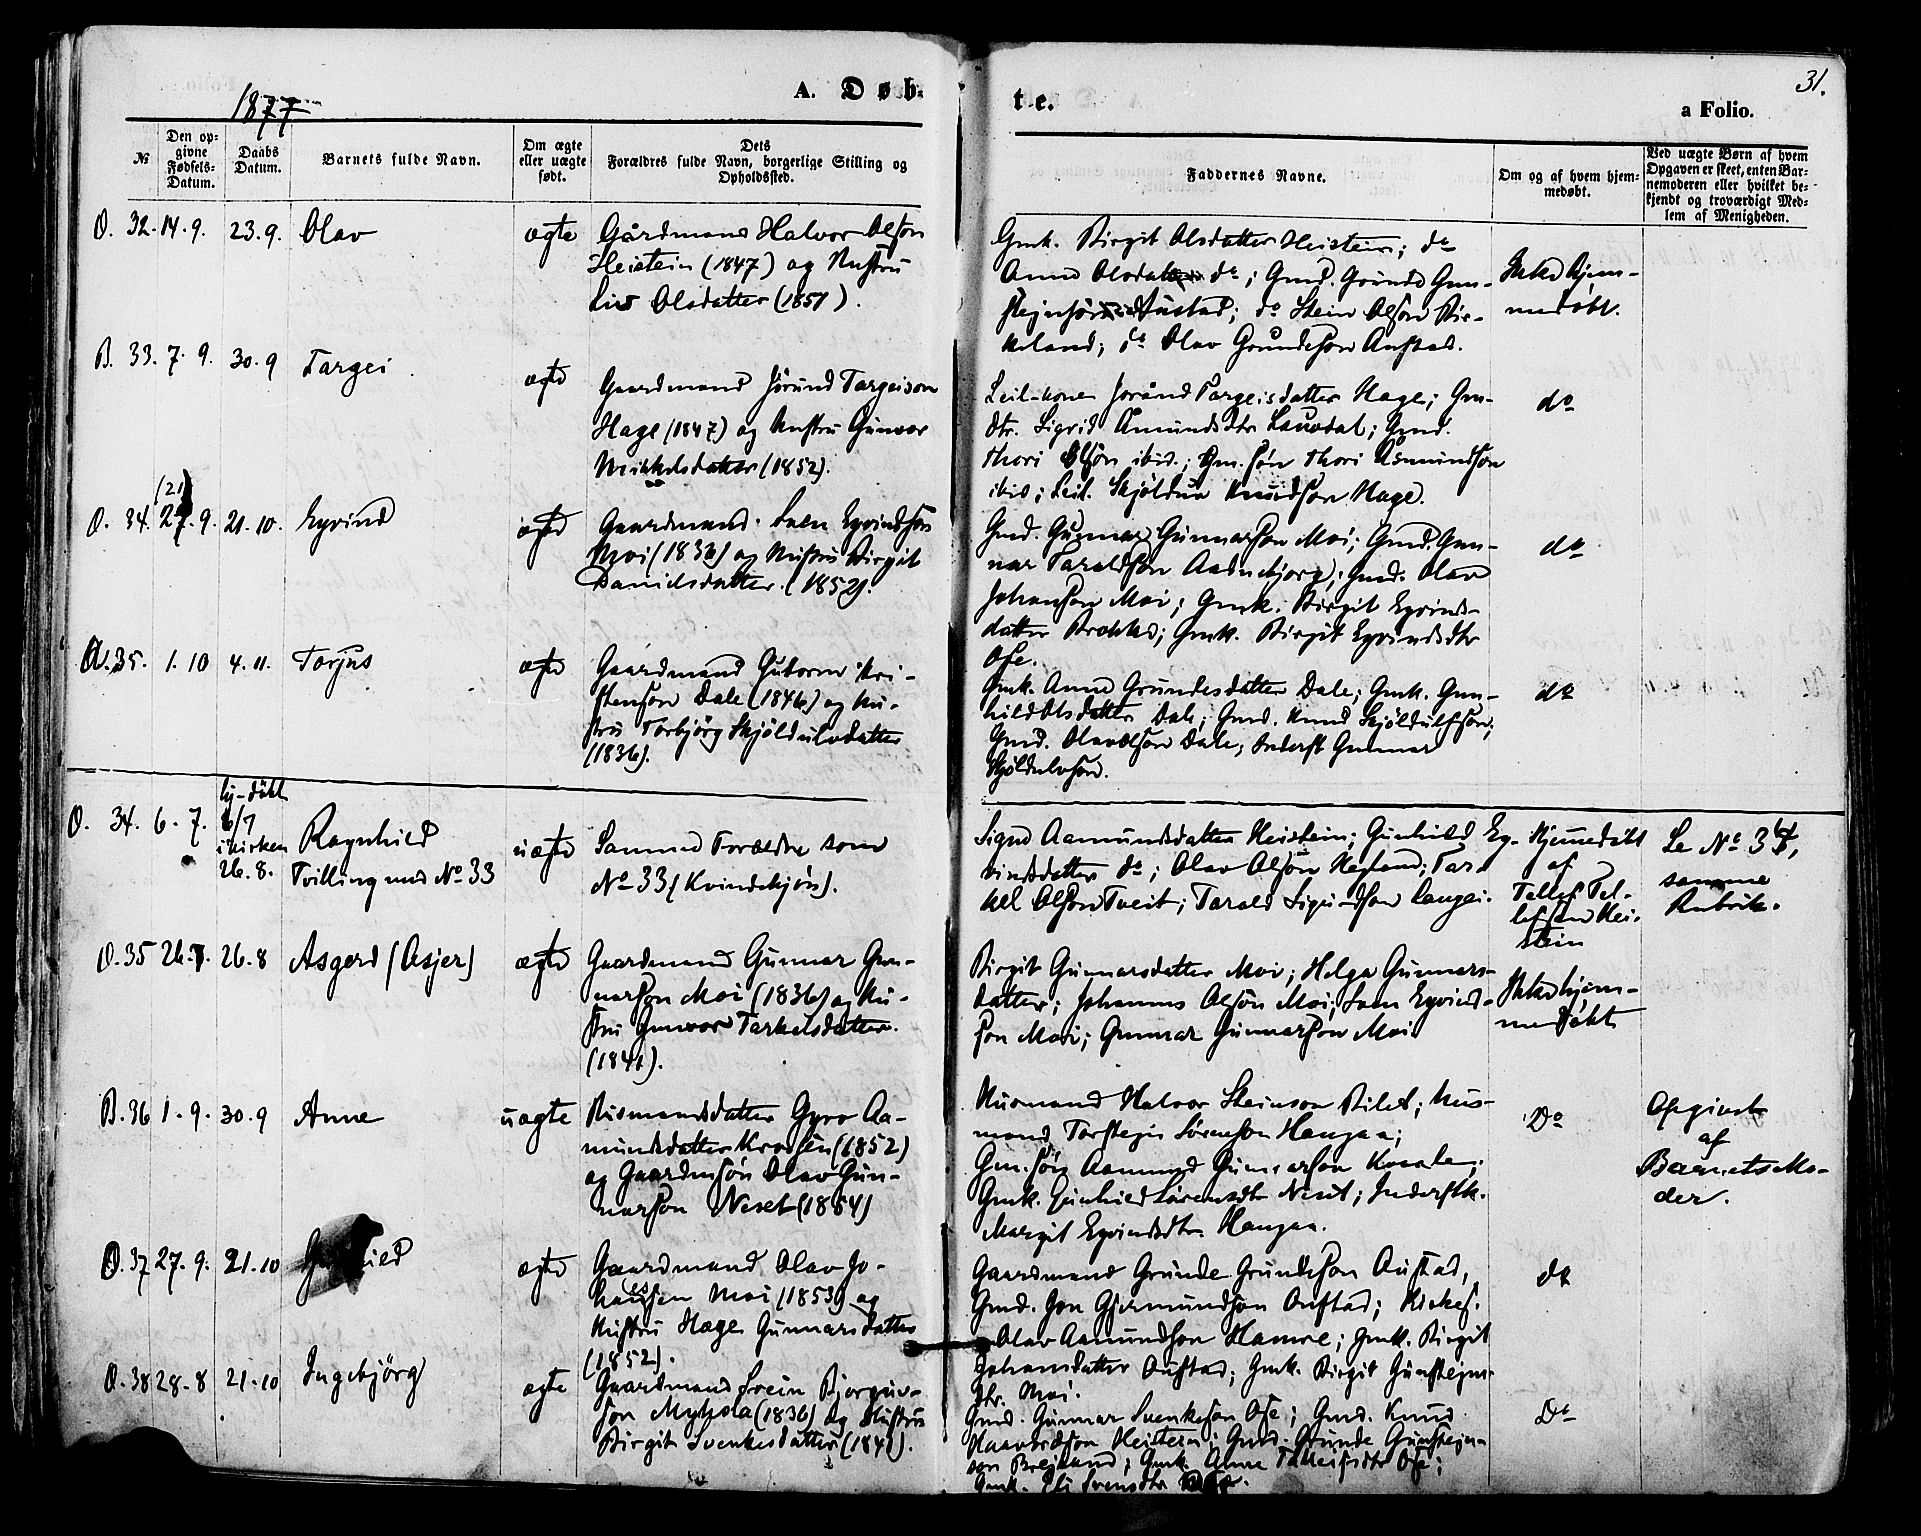 1877
A. Døb-
te.
31.
a Folio.
№
Den op-
givne
Fødsels-
Datum.
Daabs
Datum.
Barnets fulde Navn.
Om ægte
eller uægte
født.
Dets
Forældres fulde Navn, borgerlige Stilling og
Opholdssted.
Faddernes Navne.
Om og af hvem hjem-
medøbt.
Ved uægte Børn af hvem
Opgaven er skeet, enten Bar-
nemoderen eller hvilket be-
kjendt og troværdigt Med-
lem af Menigheden.
O. 32. 14. 9. 23. 9. Olav ægte
Gårdmand Halvor Olson
Heistein (1847) og Hustru
Liv Olsdatter (1851).
Gmk. Birgit Olsdatter Heistein; do
Anne Olsdatter do; Gmd. Grunde Gun-
Austad; do Stein Olson
do Olav Grundeson Austad.
Ikke hjem-
medøbt.
B. 33. 7. 9. 30. 9 Targei ægte
Gaardmand Jörund Targeison
Hage (1847) og Hustru Gunvor
Mikkelsdatter (1852).
Leil-kone Joränd Targeisdatter Hage; Gm-
dtr. Sigrid Amundsdtr Lauvdal; Gmd.
Thori Olson ibid.; Gm.sön Thori Asmundson
ibid; Leil. Skjöldu Knudson Hage.
do
(21)
O. 34. 27. 9. 21. 10. Eyvind ægte
Gaardmand Sven Eyvindson
Moi (1836) og Hustru Birgit
Danielsdatter (1852).
Gmd. Gunnar Gunnarson Moi; Gmd. Gun-
nar Taraldson Aadnebjorg; Gmd. Olav
Johanson Moi; Gmk. Birgit Eyvinds-
datter Brokke; Gmk. Birgit Eyvindsdtr
Ose.
do
O. 35. 1. 10 4. 11. Torjus ægte
Gaardmand Gutorm Kri-
stenson Dale (1846) og Hu-
stru Torbjörg Skjöldulvdatter
(1836).
Gmk. Anne Grundesdatter Dale; Gmk. Gun-
hild Olsdatter Dale; Gmd. Knud Skjöldulfson;
Gmd. Olav Olson Dale; Inderst Gunnar
Skjöldulvson.
do
O. 34. 6. 7.
hj-döbt
6/7
i kirken
26. 8.
Ragnhild
Tvilling med No 33
uægte
Samme Forældre som
No 33 (Kvindekjön).
Signe Aamundsdatter Heistein; Gunhild Ey-
vindsdatter do; Olav Olson Hegland; Tar-
kel Olson Tveit; Tarald Sigurdson Langei.
Hjemmedöbt
af
Tellef Tel-
lefsen Hei-
stein
Se No 34,
samme
Rubrik.
O. 35 26. 7. 26. 8 Asgerd (Asjer) ægte
Gaardmand Gunnar Gun-
narson Moi (1836) og Hu-
stru Gunvor Tarkelsdatter
(1841).
Birgit Gunnarsdatter Moi; Helga Gunnars-
datter; Johannes Olson Moi; Sven Eyvind-
son Moi; Gunnar Gunnarson Moi
Ikke hjem-
medöbt
B. 36 1. 9. 30. 9 Anne uægte
Husmandsdatter Gyro Aa-
mundsdatter (1852)
og Gaardmsön Olav Gun-
narson Neset (1854)
Husmand Halvor Steinson; Hus-
mand Torstein Sörenson Haugaa;
Gm.sön Aamund Gunnarson
Gmk. Gunhild Sörensdtr Neset; Inderstk.
Margit Eyvindsdtr Haugaa.
Do
Opgivet
af
Barnets Mo-
der.
O. 37 27. 9. 21. 10 ægte
Gaardmand Olav Jo-
hansen Moi (1853) og
Hustru Hage Gunnarsdatter
(1852).
Gaardmand Grunde Grundeson Austad,
Gmd. Jon Gjermundson Austad; Kirkes.
Olav Aamundson Hamre; Gmk. Birgit
Johansdatter Austad; Gmk. Birgit Gunsteins-
dtr. Moi.
do
O. 38 28. 8 21. 10 Ingebjörg ægte
Gaardmand Svein Bjorgúv-
son (1836) og Hustru
Birgit Svenkesdatter (1841).
Gmd. Gunnar Svenkeson Ose; Gmd. Knud
Haavardson Heistein; Gmd. Grunde Gunstein-
son; Gmk. Anne Ose;
Gmk. Svensdtr Ose.
Do